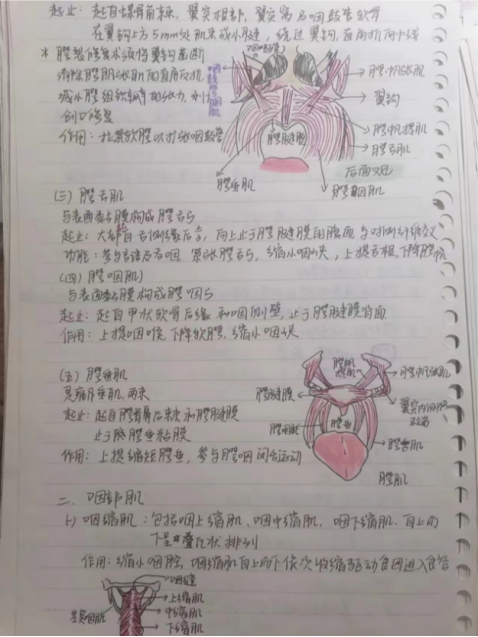 起止：起自蝶骨角棘、翼突根部、翼突窝及咽鼓管软骨
在翼钩上方5mm处肌束成小腱，绕过翼钩，直角折向中线
* 腭裂修复术须将翼钩凿断
消除腭肌张肌的直角反折
减小腭组织的张力，利于
创口修复
作用：拉紧软腭以扩张咽鼓管
翼钩
腭帆提肌
腭舌肌
腭腱膜
后面观
腭垂肌
腭咽肌
(三) 腭舌肌
与表面黏膜构成腭舌弓
起止：大部自舌侧缘后方，向上止于腭腱膜口腔面与对侧纤维交
功能：参与言语及舌咽 紧张腭舌弓，缩小咽峡，上提舌根，下降腭帆
(四) 腭咽肌
与表面黏膜构成腭咽弓
起止：起自甲状软骨后缘和咽侧壁，止于腭腱膜背面
作用：上提咽喉，下降软腭，缩小咽峡
(五) 腭垂肌
成束
起止：起自腭骨鼻后棘和腭腱膜
止于腭垂粘膜
作用：上提缩短腭垂，参与腭咽闭合运动
腭腱膜
腭帆张肌
腭垂
腭舌肌
二、咽部肌
(一) 咽缩肌：包括咽上缩肌，咽中缩肌，咽下缩肌，自上而
下呈叠瓦状排列
作用：缩小咽腔，咽缩肌自上而下依次收缩驱动食团进入食管
咽缝
上缩肌
中缩肌
下缩肌
茎突咽肌